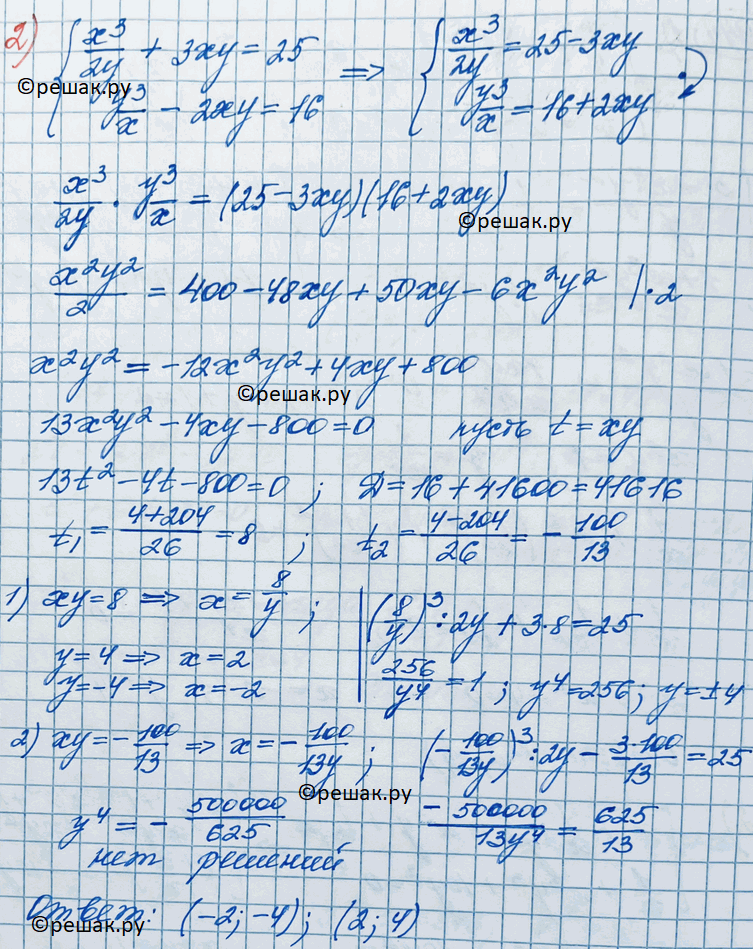 2) { x³/2y + 3xy = 25 => { x³/2y = 25 - 3xy
y³/x - 2xy = 16 y³/x = 16 + 2xy
©решак.ру
x³/2y · y³/x = (25 - 3xy)(16 + 2xy)
©решак.ру
x²y²/2 = 400 - 48xy + 50xy - 6x²y² |·2
x²y² = -12x²y² + 4xy + 800
©решак.ру
13x²y² - 4xy - 800 = 0 пусть t = xy
13t² - 4t - 800 = 0 ; D = 16 + 41600 = 41616
t₁ = (4+204)/26 = 8 ; t₂ = (4-204)/26 = -100/13
1) xy = 8 => x = 8/y ; | (8/y)³ : 2y + 3·8 = 25
y = 4 => x = 2
y = -4 => x = -2
256/y⁴ = 1 ; y⁴ = 256 ; y = ±4
2) xy = -100/13 => x = -100/13y ; (-100/13y)³ : 2y - 3·100/13 = 25
©решак.ру
y⁴ = -500000/625 -500000/13y⁴ = 625/13
нет решений
Ответ: (-2; -4); (2; 4)
©решак.ру